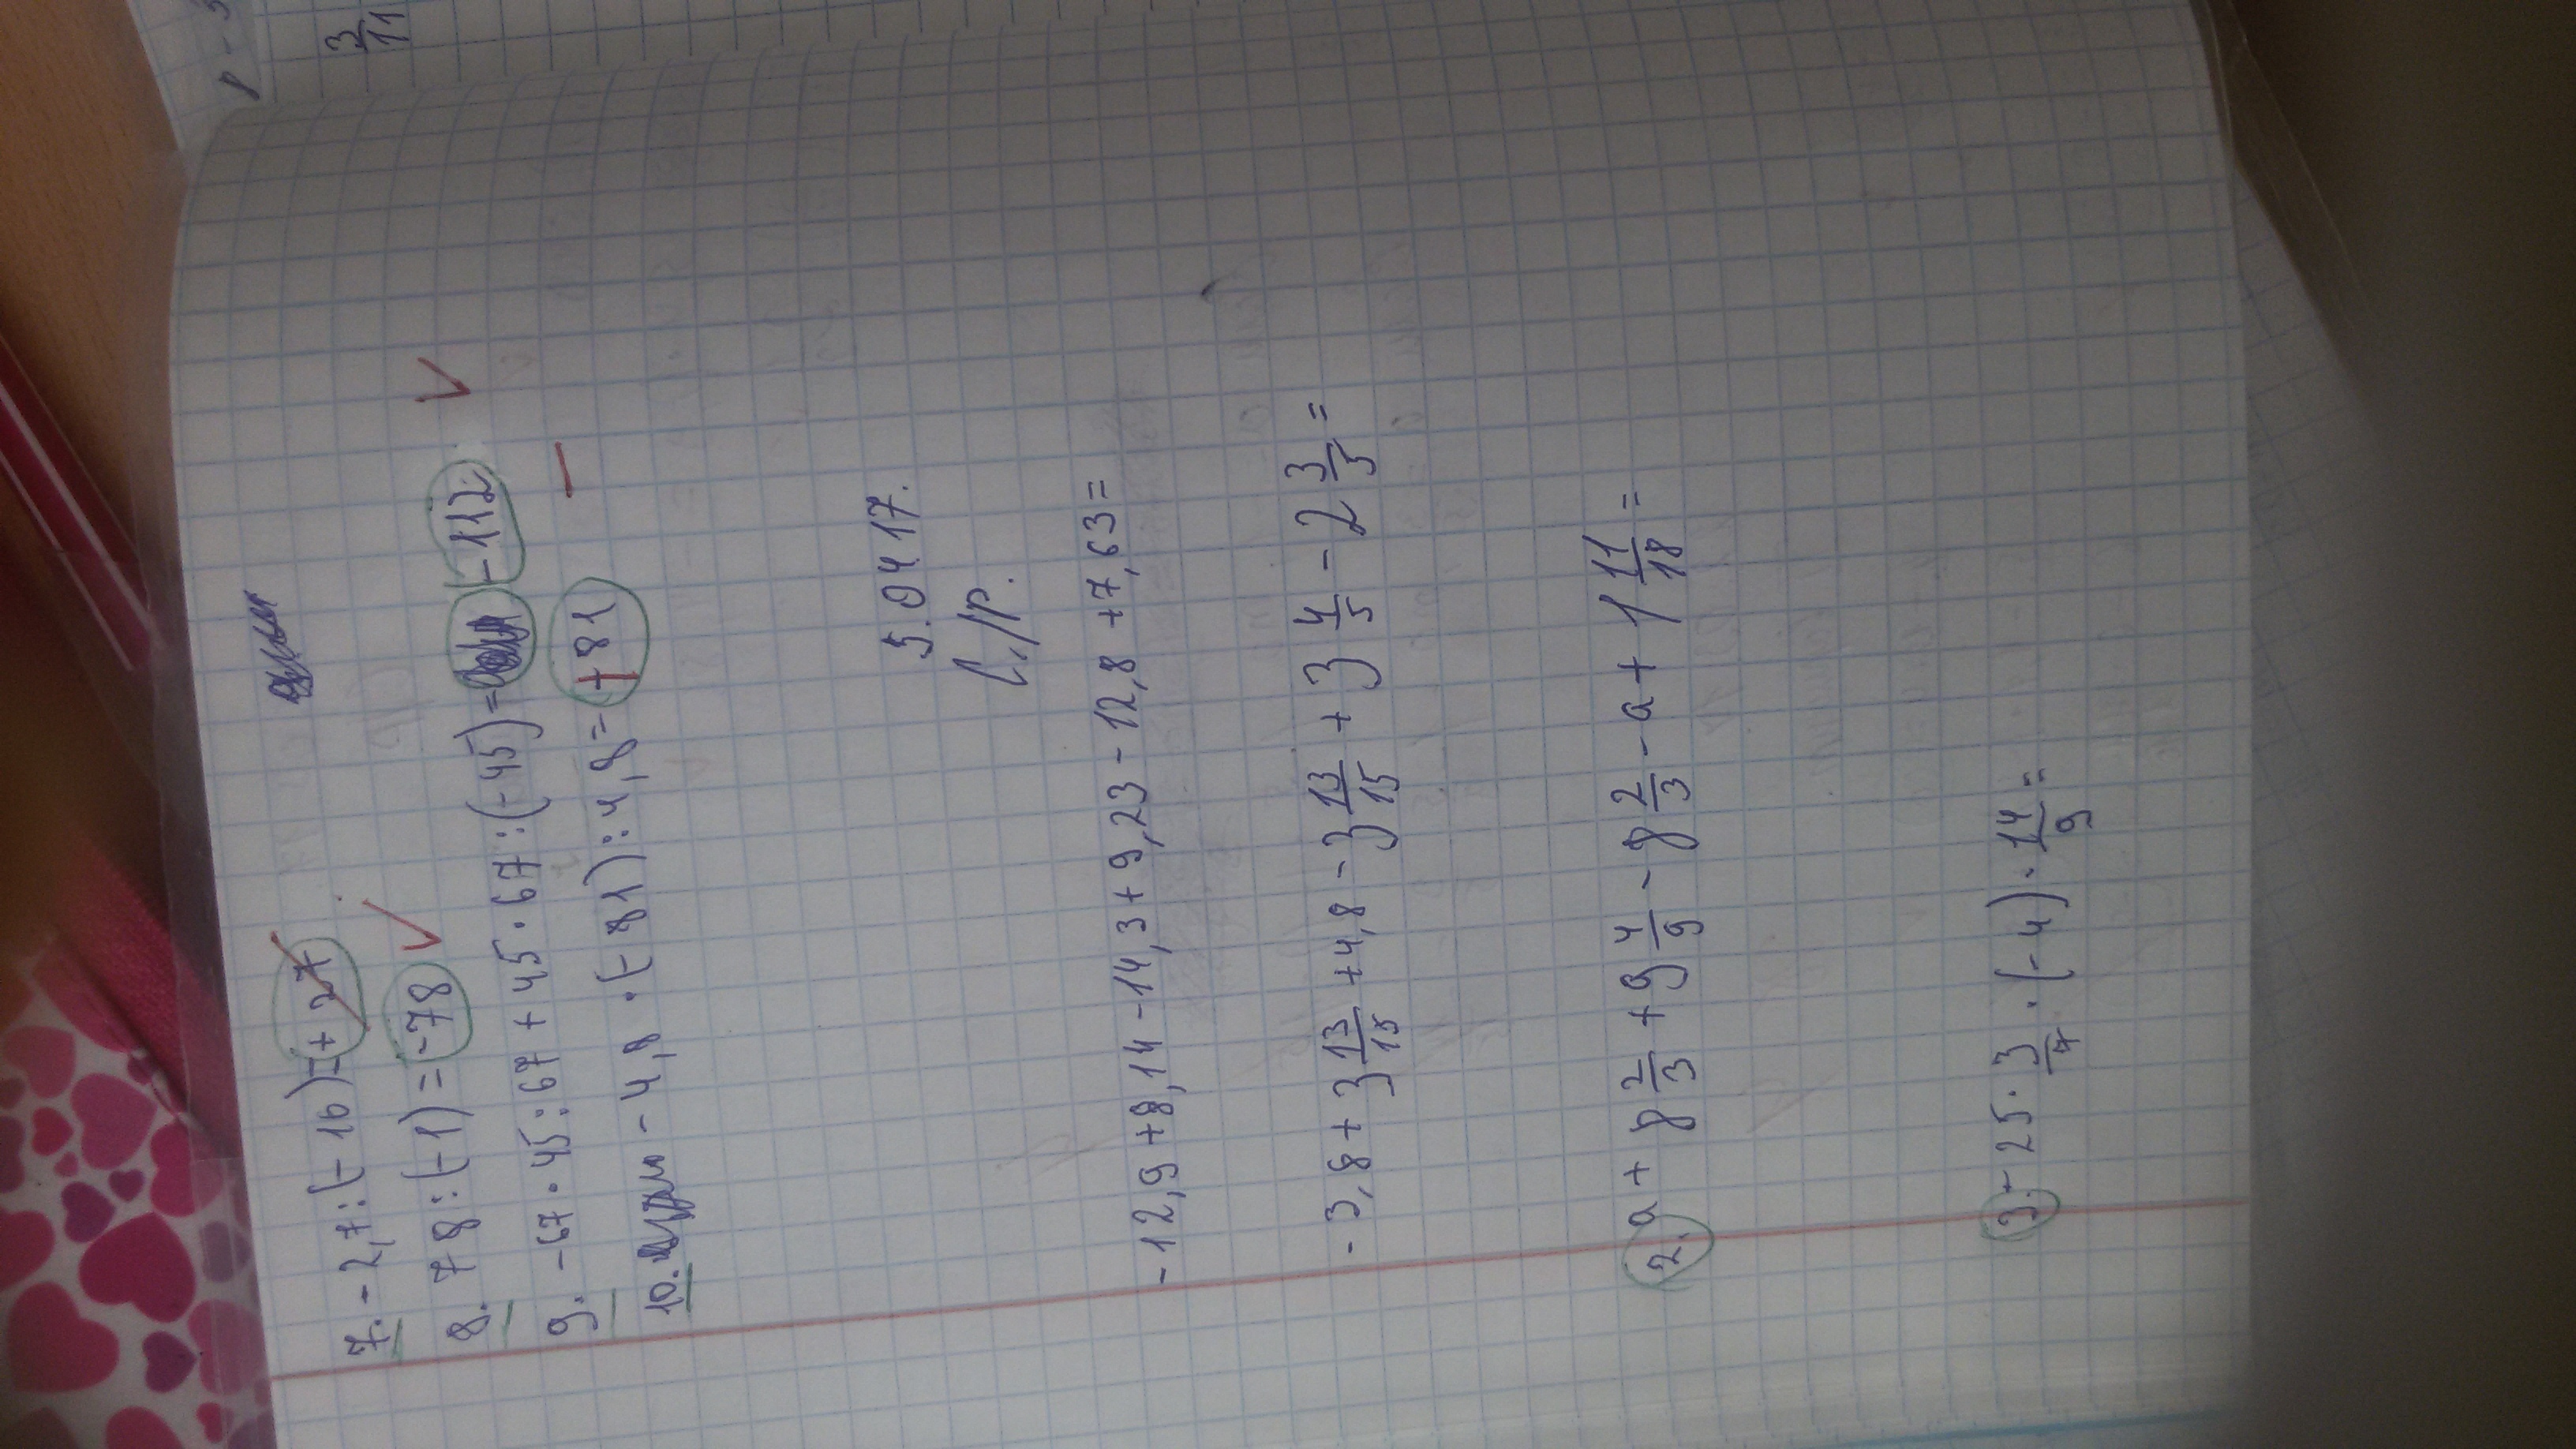 3/11
7. -2,7:(-10)=+27
8. 78:(-1)=-78
9. -67·45:67+45·67:(-45)= -112
10. -4,8·(-81):4,8=+81
5.04 17.
С./р.
-12,9+8,14-14,3+9,23-12,8+7,63=
-3,8+3 13/15+4,8-3 13/15+3 4/5-2 3/5=
2. a+8 2/3+9 4/9-8 2/3-a+1 11/18=
3. -25·3/7·(-4)·14/9=